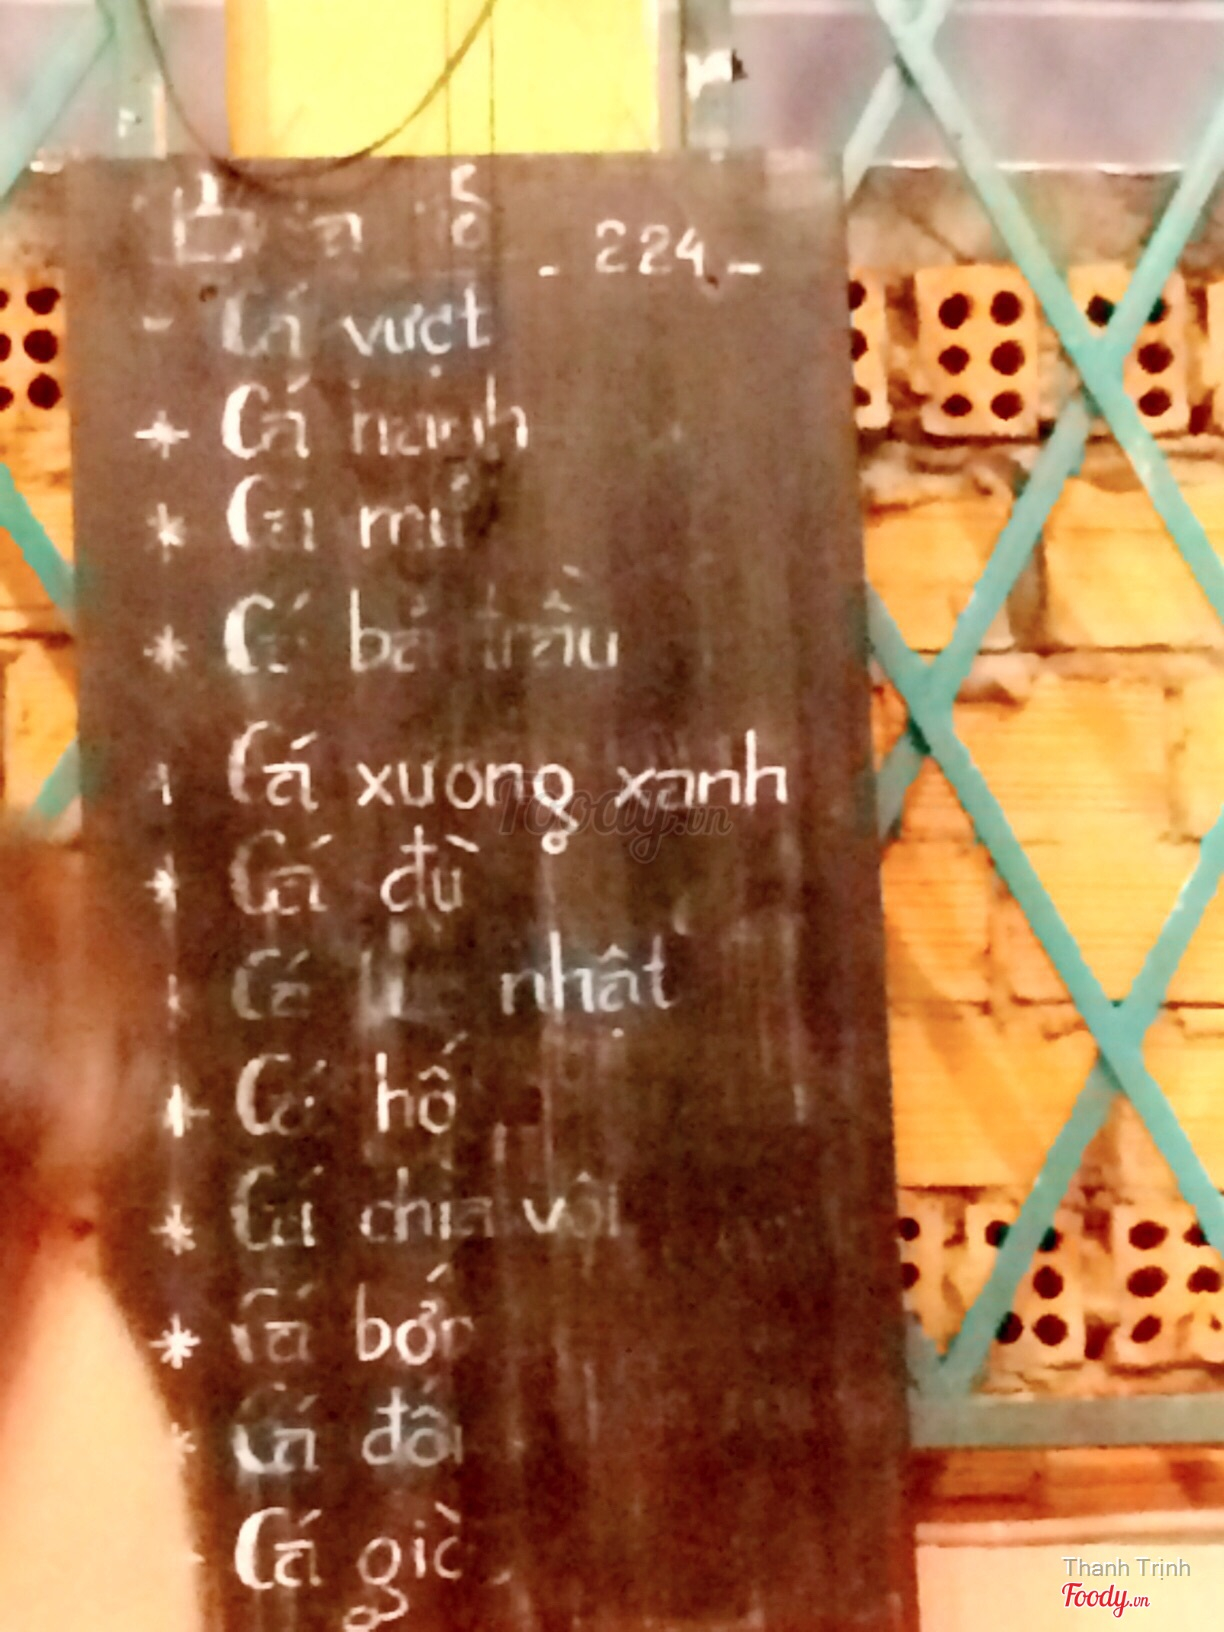 - 224 -
- Cá vượt
* Cá hanh
* Cá mú
* Cá bả trầu
Cá xương xanh
* Cá đù
Cá nhật
* Cá hố
* Cá chìa vôi
* Cá bớp
* Cá đối
Cá giò
Foody.vn
Thanh Trịnh
Foody.vn